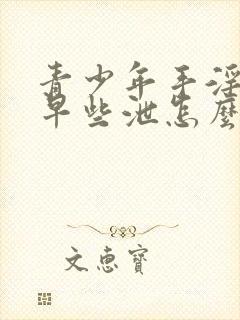 青少年手淫
早些泄怎麽
文惠寶